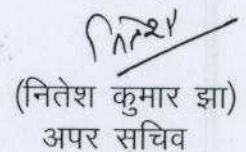 नितेश
(नितेश कुमार झा)
अपर सचिव